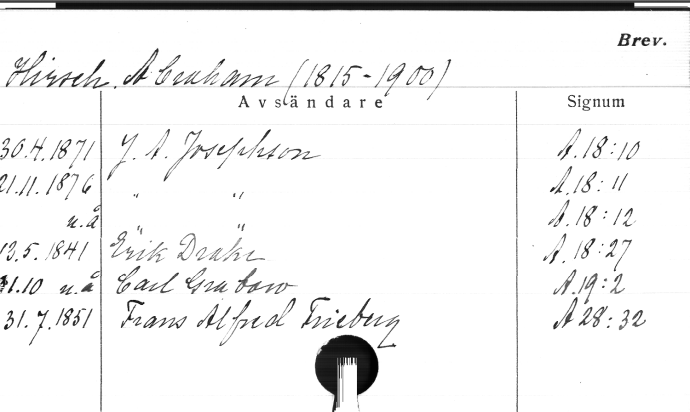 Brev.
Hirsch, Abraham (1815-1900)
Avsändare Signum
30.4.1871 J. A. Josephson A.18:10
21.11.1876 " " A.18:11
u.å " A.18:12
12.5.1841 Erik Drake A.18:27
31.10 u.å Carl Grabow A.19:2
31.7.1851 Frans Alfred Frieberg A 28:32